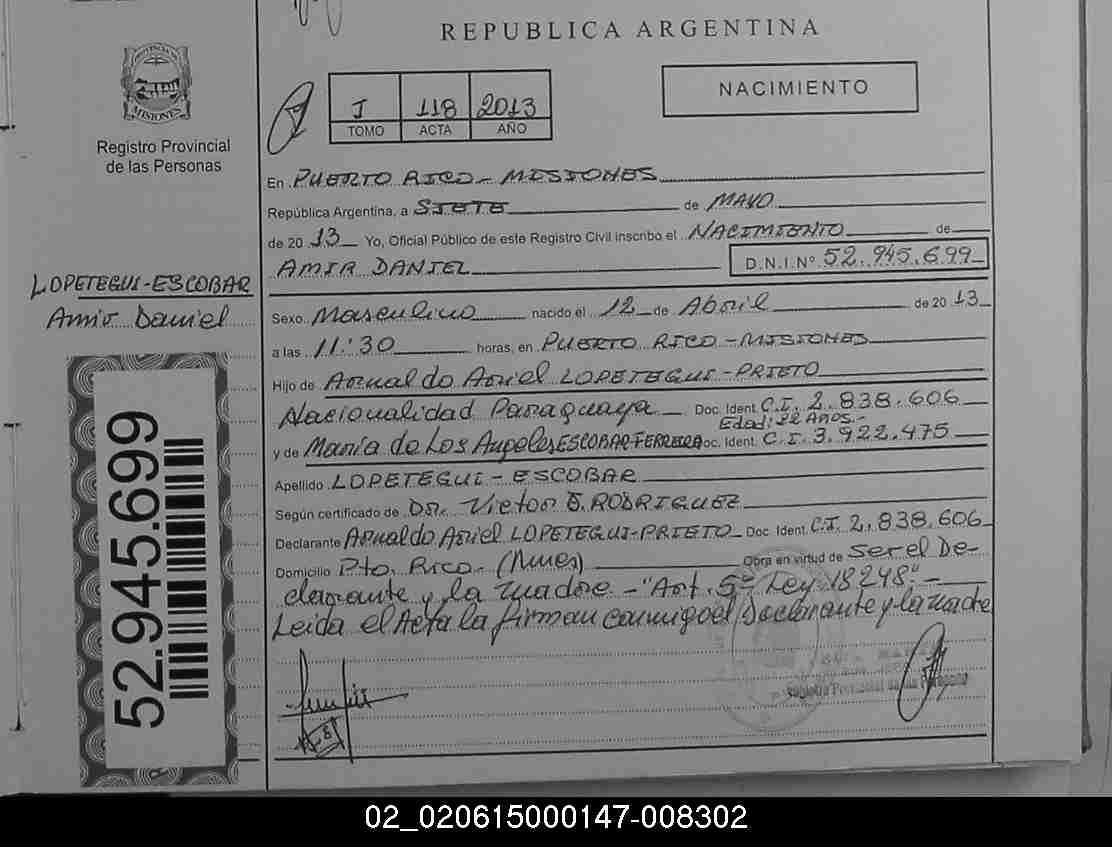 REPUBLICA ARGENTINA
NACIMIENTO
I 118 2013
TOMO ACTA AÑO
PROVINCIA DE MISIONES
Registro Provincial
de las Personas
En PUERTO RICO - MISIONES
República Argentina, a SIETE de MAYO
de 2013 Yo, Oficial Público de este Registro Civil inscribo el NACIMIENTO de
AMIR DANIEL D.N.I.Nº 52.945.699
LOPETEGUI-ESCOBAR
Amir Daniel
Sexo Masculino nacido el 12 de Abril de 2013
a las 11:30 horas, en PUERTO RICO - MISIONES
Hijo de Arnaldo Ariel LOPETEGUI-PRIETO
Nacionalidad Paraguaya Doc. Ident. C.I. 2.838.606
Edad: 22 Años.-
y de María de Los Angeles ESCOBAR-FERREIRA Doc. Ident. C.I. 3.922.475
Apellido LOPETEGUI - ESCOBAR
Según certificado de Dr. Victor E. RODRIGUEZ
Declarante Arnaldo Ariel LOPETEGUI-PRIETO Doc Ident. C.I. 2.838.606
Domicilio Pto. Rico - (Mnes) Obra en virtud de ser el De-
clarante y la madre - "Art. 5º Ley 18248".-
Leida el Acta la firman conmigo el Declarante y la madre
Registro Provincial de las Personas
52.945.699
02_020615000147-008302